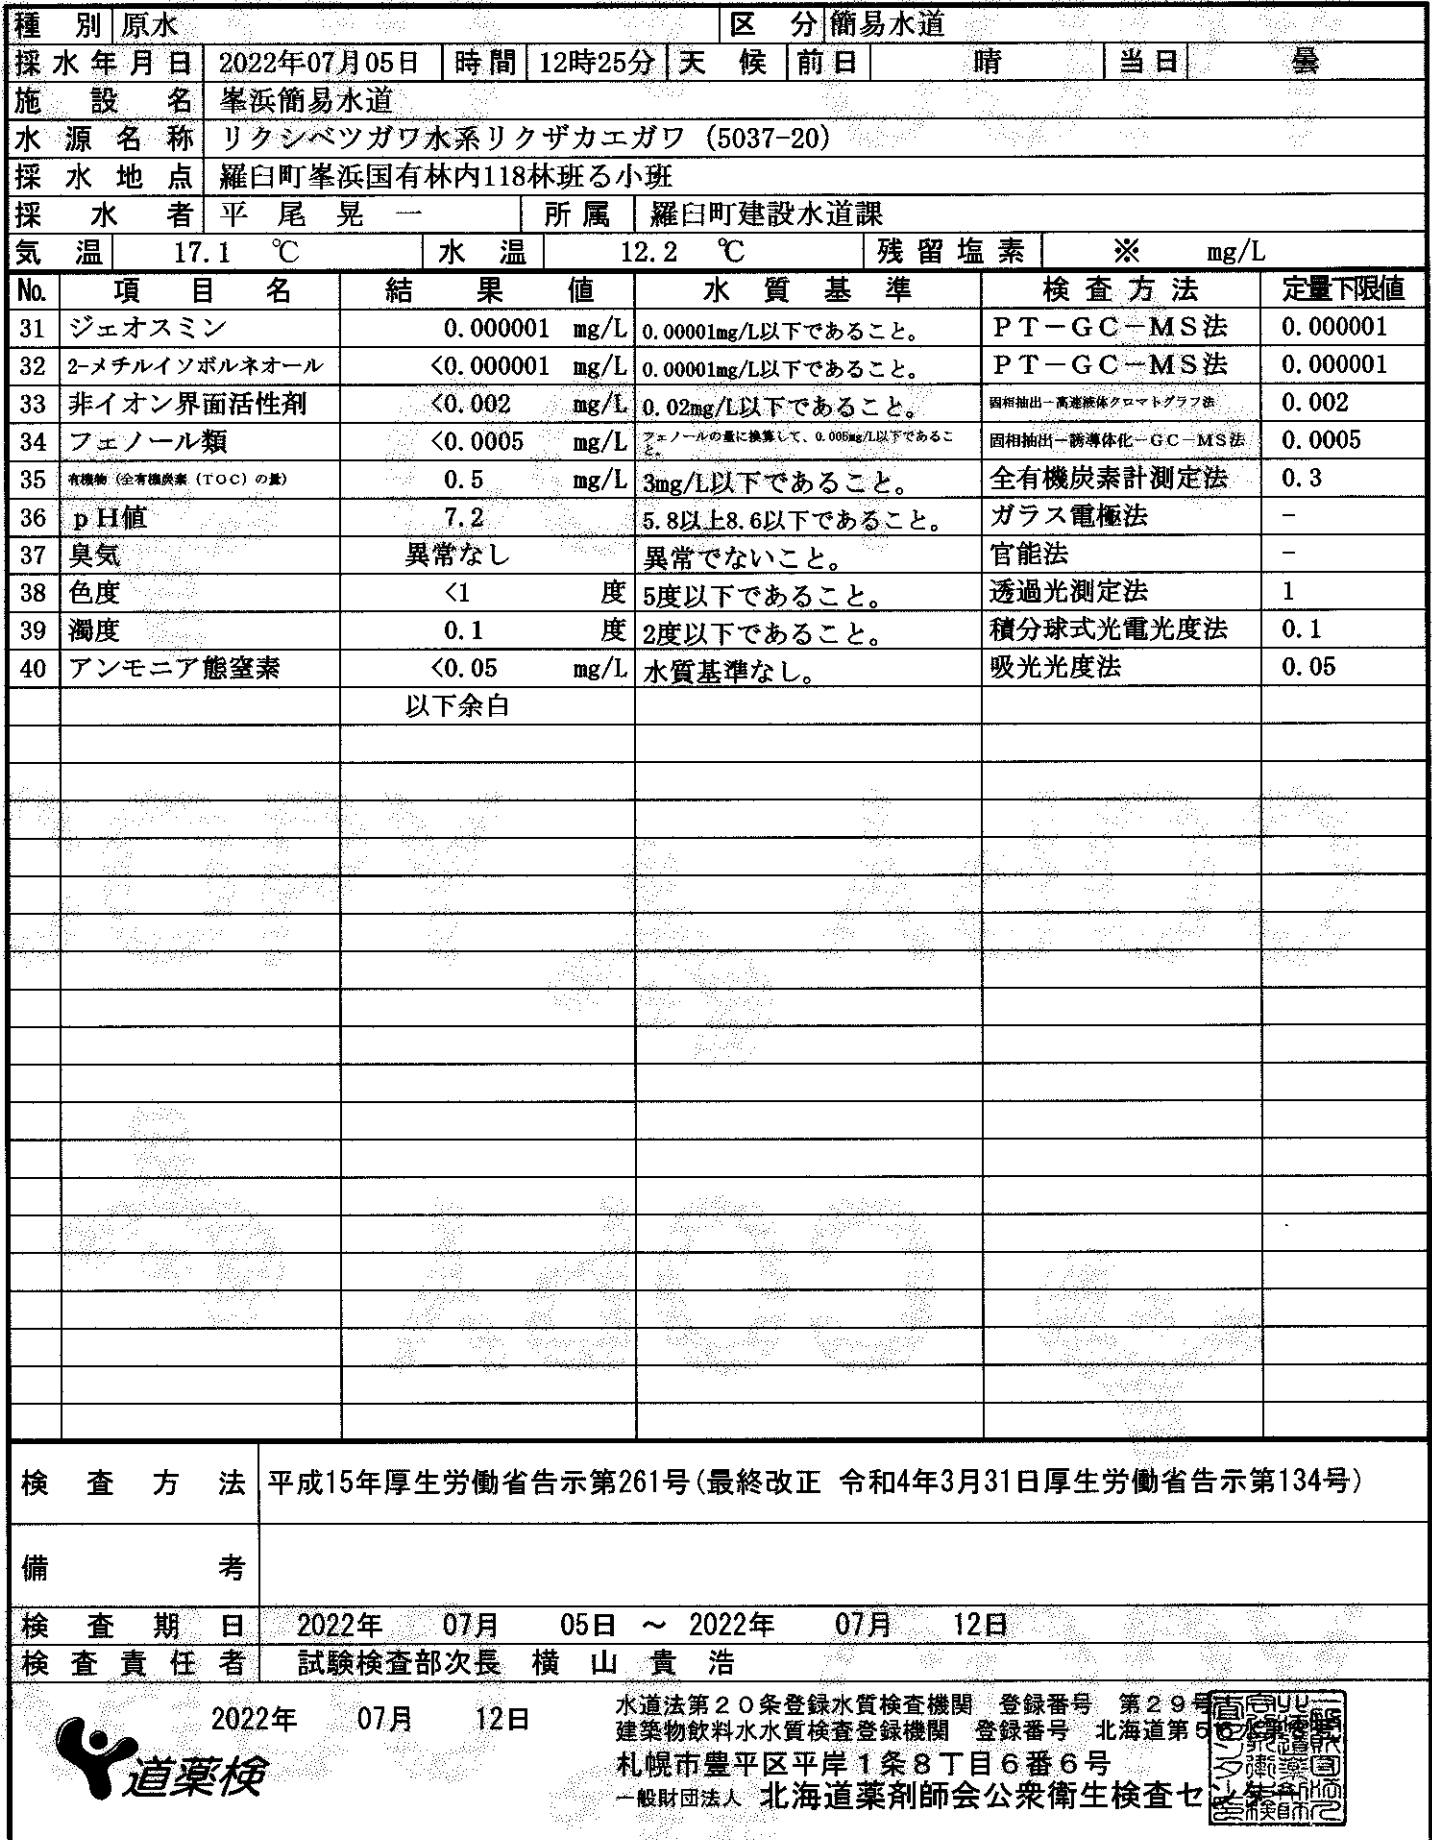 種別 原水 区分 簡易水道
採水年月日 2022年07月05日 時間 12時25分 天候 前日 晴 当日 曇
施設名 峯浜簡易水道
水源名称 リクシベツガワ水系リクザカエガワ (5037-20)
採水地点 羅臼町峯浜国有林内118林班る小班
採水者 平尾晃一 所属 羅臼町建設水道課
気温 17.1 ℃ 水温 12.2 ℃ 残留塩素 ※ mg/L
No. 項目名 結果値 水質基準 検査方法 定量下限値
31 ジェオスミン 0.000001 mg/L 0.00001mg/L以下であること。 PT-GC-MS法 0.000001
32 2-メチルイソボルネオール <0.000001 mg/L 0.00001mg/L以下であること。 PT-GC-MS法 0.000001
33 非イオン界面活性剤 <0.002 mg/L 0.02mg/L以下であること。 固相抽出-高速液体クロマトグラフ法 0.002
34 フェノール類 <0.0005 mg/L フェノールの量に換算して、0.005mg/L以下であること。 固相抽出-誘導体化-GC-MS法 0.0005
35 有機物(全有機炭素(TOC)の量) 0.5 mg/L 3mg/L以下であること。 全有機炭素計測定法 0.3
36 pH値 7.2 5.8以上8.6以下であること。 ガラス電極法 -
37 臭気 異常なし 異常でないこと。 官能法 -
38 色度 <1 度 5度以下であること。 透過光測定法 1
39 濁度 0.1 度 2度以下であること。 積分球式光電光度法 0.1
40 アンモニア態窒素 <0.05 mg/L 水質基準なし。 吸光光度法 0.05
以下余白
検査方法 平成15年厚生労働省告示第261号(最終改正 令和4年3月31日厚生労働省告示第134号)
備考
検査期日 2022年 07月 05日 ~ 2022年 07月 12日
検査責任者 試験検査部次長 横山貴浩
2022年 07月 12日
道薬検
水道法第20条登録水質検査機関 登録番号 第29号
建築物飲料水水質検査登録機関 登録番号 北海道第5
札幌市豊平区平岸1条8丁目6番6号
一般財団法人 北海道薬剤師会公衆衛生検査センター